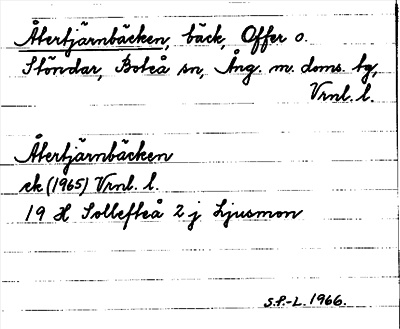 Återtjärnbäcken, bäck, Offer o.
Stöndar, Boteå sn, Ång. m. doms. bg,
Vrnl. l.
Återtjärnbäcken
ek (1965) Vrnl. l.
19 H Sollefteå 2 j Ljusmon
S.P.-L. 1966.